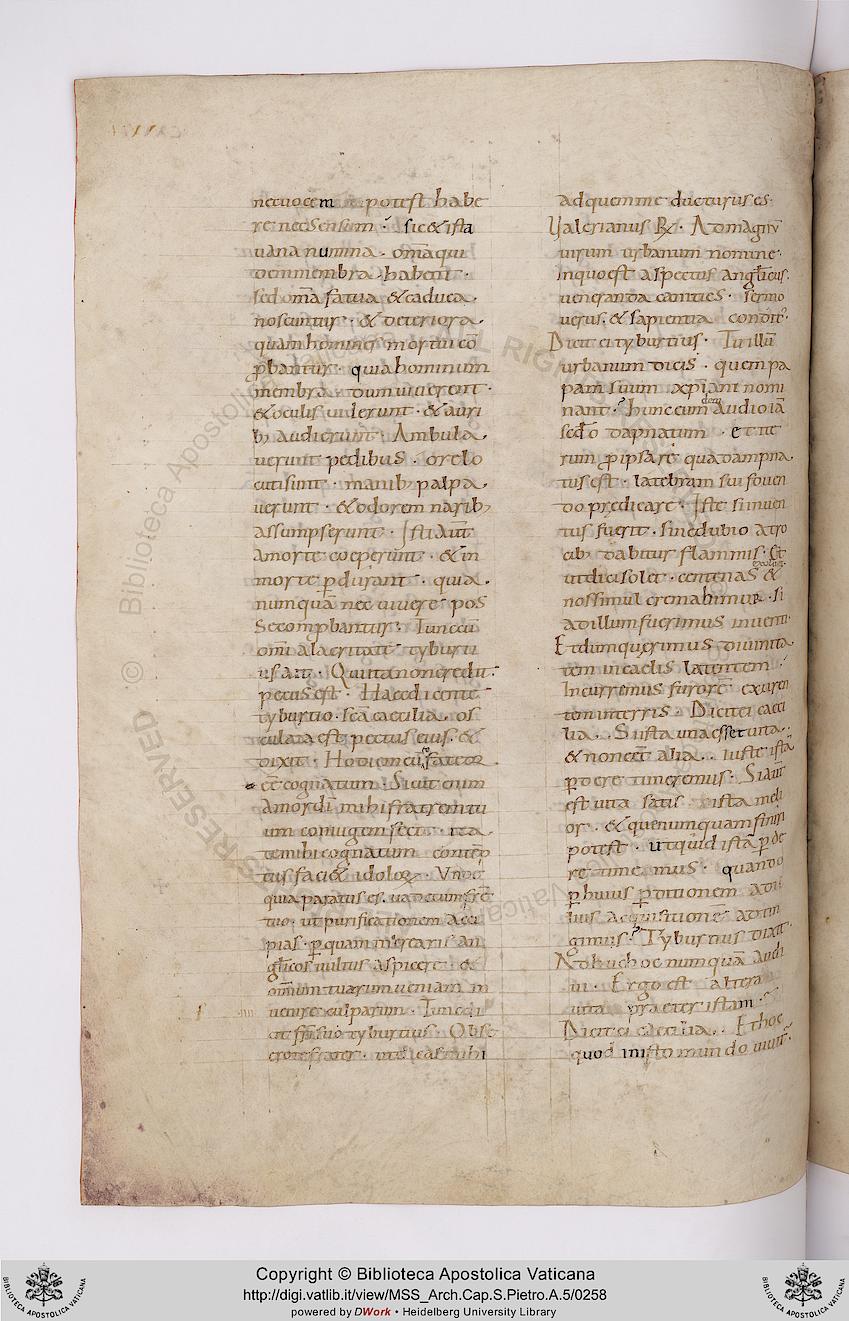 nec uocem potest habe
re nec sensum · sic & ista
uana numina · om̄a qui
dem membra habent ·
sed om̄a fatua & caduca ·
noscuntur · & deteriora ·
quam homines mortui cō
ꝓbantur · quia hominum
membra · dum uiuerent ·
& oculis uiderunt · & auri
bꝫ audierunt · Ambula
uerunt pedibus · ore lo
cuti sunt · manibꝫ palpa
uerunt · & odorem naribꝫ
assumpserunt · Isti aūt
a morte coeperunt · & in
morte ꝑdurant · quia ·
numquā nec uiuere pos
se conꝓbantur · Tunc cū
omī alacritate tyburti
us ait · Qui ita non credit ·
pecus est · Haec dicente
tyburtio · sc̄a caecilia · os
culata est pectus eius · &
dixit · Hodie meū fateor
eē cognatum · Sicut enim
amor dī mihi fratrem tu
um coniugem fecit · ita
te mihi cognatum contēp
tus faci& idolorꝝ · Unde
quia paratus es · uade cum frē
tuo · ut purificationem acci
pias · ꝑ quam mercaris an
gl̄icos uultus aspicere · &
omnium tuarum ueniam in
uenire culparum · Tunc di
cit fr̄i suo tyburtius · Obse
cro te frater · ut dicas mihi
ad quem me ducturus es ·
Ualerianus ℞ · Ad magnū
uirum urbanum nomine ·
In quo est aspectus angl̄icus ·
ueneranda canities · sermo
uerus · & sapientia condit᷒ ·
Dicit ei tyburtius · Tu illū
urbanum dicis · quem pa
pam suum xp̄iani nomi
nant · hunc ego audio iā
sed̄o dapnatum · et ite
rum ꝓ ipsa re qua dampna
tus est · latebram sui fouen
do predicare · Iste si inuen
tus fuerit · sine dubio atro
cibꝫ dabitur flammis · Et
ut dici solet · centenas &
nos simul cremabimur · si
ad illum fuerimus inuenti
Et dum querimus diuinita
tem in caelis latentem ·
Incurremus furorē exuren
tem in terris · Dicit ei caeci
lia · Si ista una esset uita ·
& non eēt alia · iuste istā
ꝑdere timeremus · Si aūt
est uita satis ista meli
or · & que numquam finiri
potest · ut quid istā ꝑde
re timemus · quando
ꝑ huius ꝑditionem ad il
lius acquisitionē attin
gimus · Tyburtius dixit ·
Adhuc hoc numquā audi
ui · Ergo est altera
uita praeter istam ·
Dicit ei caecilia · Et hoc
quod in isto mundo uiuit᷒ ·
Copyright © Biblioteca Apostolica Vaticana
http://digi.vatlib.it/view/MSS_Arch.Cap.S.Pietro.A.5/0258
powered by DWork • Heidelberg University Library